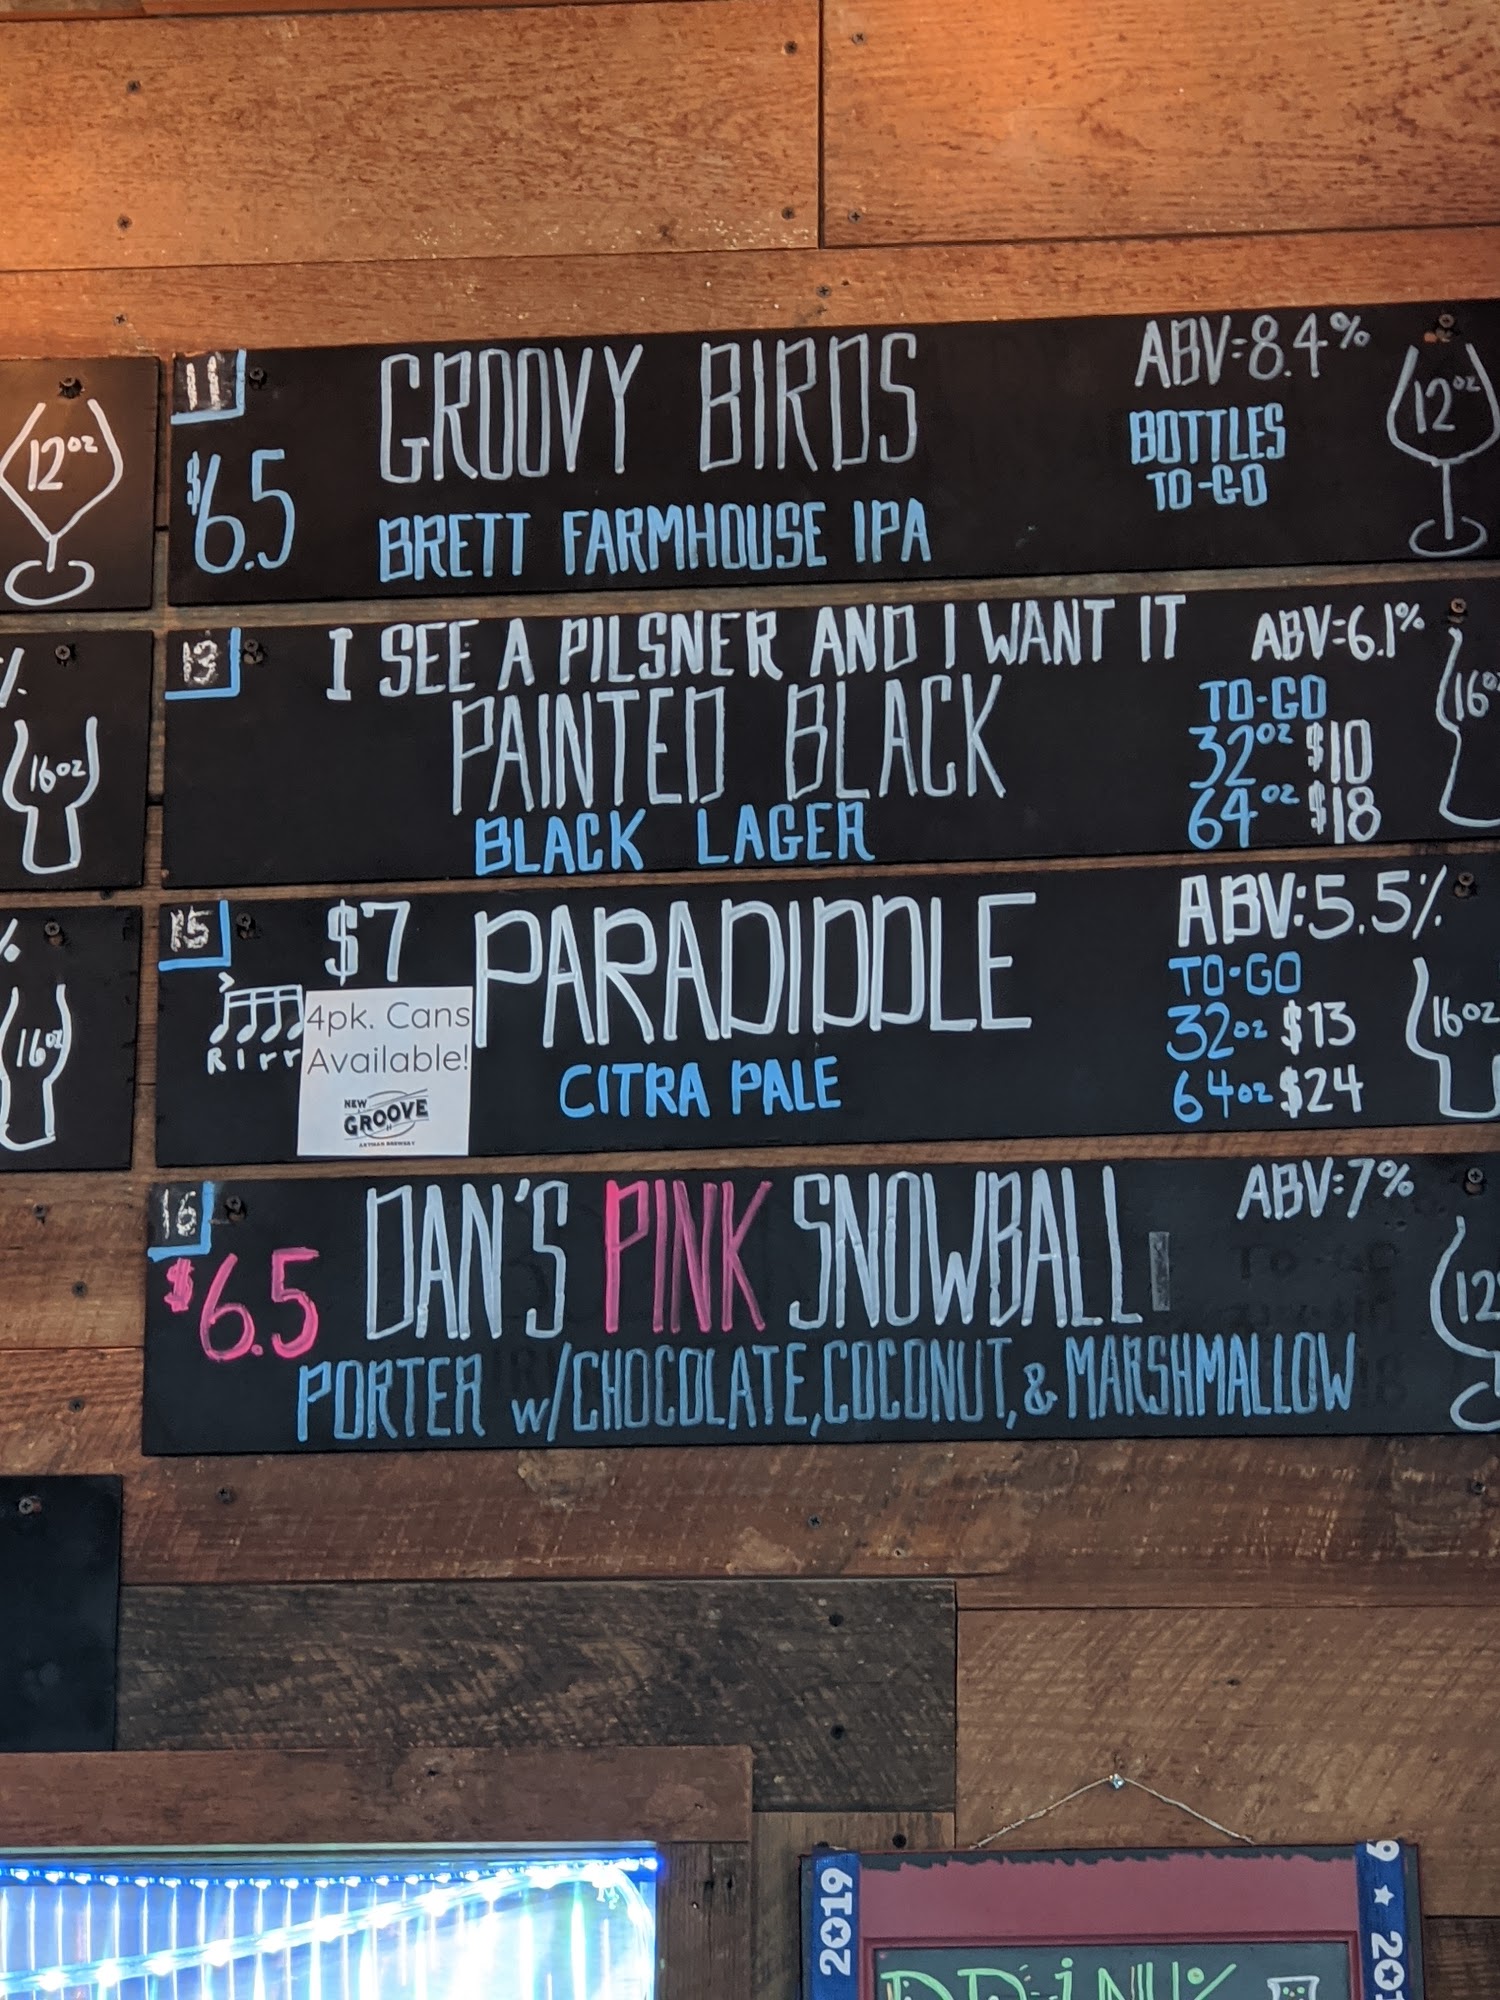 12oz
11
GROOVY BIRDS
ABV=8.4%
12oz
$6.5
BOTTLES
TO-GO
BRETT FARMHOUSE IPA
%
16oz
13
I SEE A PILSNER AND I WANT IT
ABV=6.1%
PAINTED BLACK
TO-GO
32oz $10
64oz $18
16oz
BLACK LAGER
%
16oz
15
$7
PARADIDDLE
ABV:5.5%
R l r r
4pk. Cans
Available!
NEW
GROOVE
ARTISAN BREWERY
TO-GO
32oz $13
64oz $24
16oz
CITRA PALE
16
DAN'S PINK SNOWBALL
ABV:7%
$6.5
12
PORTER w/CHOCOLATE, COCONUT, & MARSHMALLOW
2019
9 ★ 201
DRINK